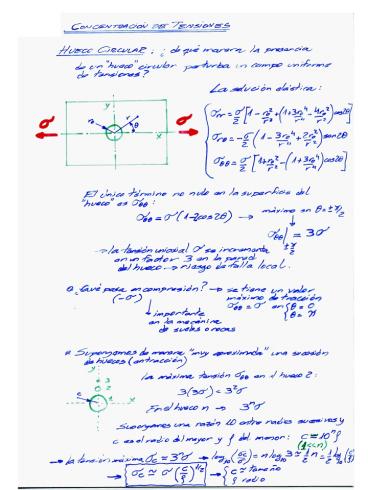 CONCENTRACIÓN DE TENSIONES
HUECO CIRCULAR: ¿de qué manera la presencia
de un "hueco" circular perturba un campo uniforme
de tensiones?
La solución elástica:
σ σ
y x r θ
σrr = σ/2 [1 - r₀²/r² + (1 + 3r₀⁴/r⁴ - 4r₀²/r²) cos2θ]
σrθ = -σ/2 (1 - 3r₀⁴/r⁴ + 2r₀²/r²) sen2θ
σθθ = σ/2 [1 + r₀²/r² - (1 + 3r₀⁴/r⁴) cos2θ]
El único término no nulo en la superficie del
"hueco" es σθθ:
σθθ = σ (1 - 2cos2θ) → máximo en θ = ± π/2
σθθ|± π/2 = 3σ
→ la tensión uniaxial σ se incrementa
en un factor 3 en la pared
del hueco → riesgo de falla local.
¿Qué pasa en compresión? → se tiene un valor
(-σ) máximo de tracción
σθθ = σ en { θ = 0
θ = π
↓ importante
en la mecánica
de suelos o rocas
Supongamos de manera "muy aproximada" una sucesión
de huecos (en tracción)
la máxima tensión σθθ en el hueco 2:
3(3σ) = 3²σ
En el hueco n → 3ⁿσ
Supongamos una razón 10 entre radios sucesivos y
c es el radio del mayor y ρ del menor: c = 10ⁿρ
(1<<n)
→ la tensión máxima σc ≃ 3ⁿσ → log₁₀(σc/σ) = n log₁₀3 ≃ ½ n = ½ lg(c/ρ)
→ σc ≃ σ (c/ρ)^1/2 → { c ≃ tamaño
ρ radio